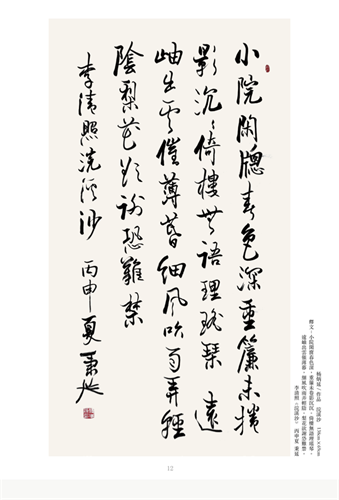 小院閑牕春色深重簾未捲
影沉沉倚樓無語理瑤琴 遠
岫出雲催薄暮細風吹雨弄輕
陰梨花欲謝恐難禁
李清照浣溪沙 丙申夏
作品 浣溪沙 138cm×69cm
釋文:小院閑窗春色深,重簾未捲影沉沉,倚樓無語理瑤琴。
遠岫出雲催薄暮,細風吹雨弄輕陰,梨花欲謝恐難禁。
李清照《浣溪沙》 丙申夏
12